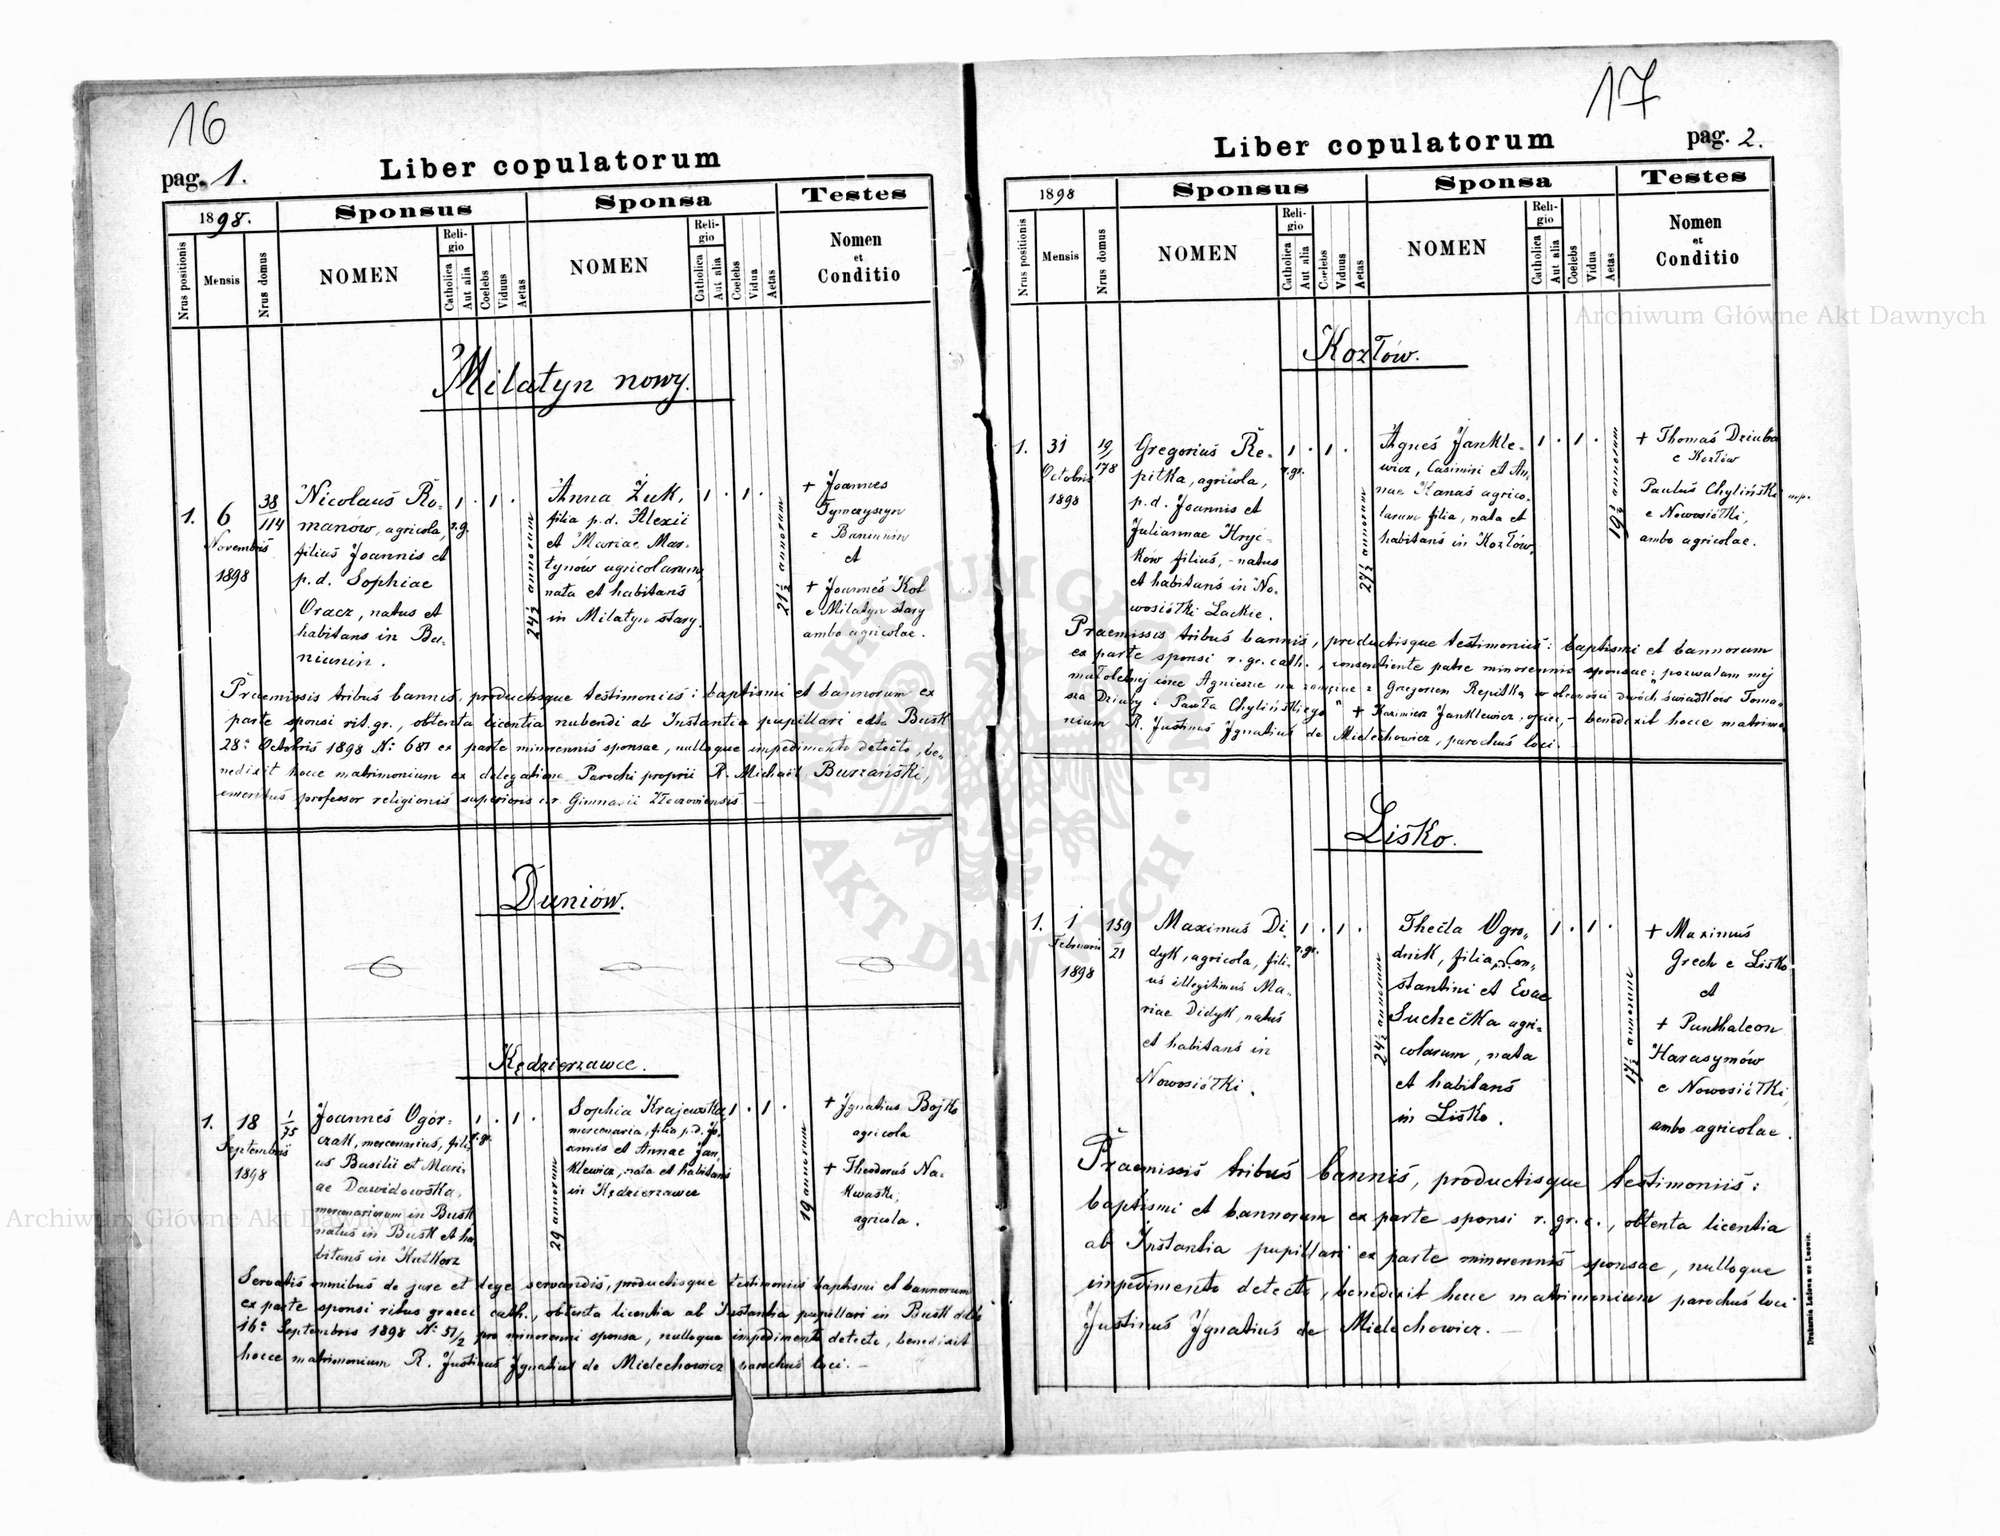 16
pag. 1.
Liber copulatorum
1898.
Sponsus
Sponsa
Testes
Nrus positionis
Mensis
Nrus domus
NOMEN
Religio
Catholica
Aut alia
Coelebs
Viduus
Aetas
NOMEN
Religio
Catholica
Aut alia
Coelebs
Vidua
Aetas
Nomen
et
Conditio
Milatyn nowy.
1.
6
Novembris
1898
38
114
Nicolaus Ro-
manów, agricola,
filius Joannis et
p.d. Sophiae
Oracz, natus et
habitans in Ba-
niunin.
1 . 1 .
r.g.
24½ annorum
Anna Żuk,
filia p.d. Alexii
et Mariae Mar-
tynów agricolarum,
nata et habitans
in Milatyn stary.
1 . 1 .
21½ annorum
+ Joannes
Tymczyszyn
e Baniunin
et
+ Joannes Kot
e Milatyn stary
ambo agricolae.
Praemissis tribus bannis, productisque testimoniis: baptismi et bannorum ex
parte sponsi rit. gr., obtenta licentia nubendi ab Instantia pupillari ddto Busk
28. Octobris 1898 N: 681 ex parte minorennis sponsae, nulloque impedimento detecto, be-
nedixit hocce matrimonium ex delegatione Parochi proprii R. Michaël Burzański,
emeritus professor religionis superioris c.r. Gimnasii Złoczoviensis. —
Duniów.
Kędzierzawce.
1.
18
Septembris
1898
1
75
Joannes Ogór-
czak, mercenarius, fili-
us Basilii et Mari-
ae Dawidowska,
mercenariorum in Busk
natus in Busk et ha-
bitans in Kutkorz
1 . 1 .
r.gr.
29 annorum
Sophia Krajewska
mercenaria, filia p.d. Jo-
annis et Annae Jan-
klewicz, nata et habitans
in Kędzierzawce
1 . 1 .
19 annorum
+ Ignatius Bojko
agricola
+ Theodorus Na-
kwaski,
agricola.
Servatis omnibus de jure et lege servandis, productisque testimoniis baptismi et bannorum
ex parte sponsi ritus graeci cath., obtenta licentia ab Instantia pupillari in Busk ddto
16. Septembris 1898 N: 51/2 pro minorenni sponsa, nulloque impedimento detecto, benedixit
hocce matrimonium R. Justinus Ignatius de Mielechowicz parochus loci. —
17
Liber copulatorum
pag. 2.
1898
Sponsus
Sponsa
Testes
Nrus positionis
Mensis
Nrus domus
NOMEN
Religio
Catholica
Aut alia
Coelebs
Viduus
Aetas
NOMEN
Religio
Catholica
Aut alia
Coelebs
Vidua
Aetas
Nomen
et
Conditio
Kozłów.
1.
31
Octobris
1898
19
178
Gregorius Re-
pitka, agricola,
p.d. Joannis et
Juliannae Hryć-
ków filius, - natus
et habitans in No-
wosiółki Lackie.
1 . 1 .
r.gr.
27½ annorum
Agnes Jankle-
wicz, Casimiri et An-
nae Kanas agrico-
larum filia, nata et
habitans in Kozłów.
1 . 1 .
19½ annorum
+ Thomas Dziuba
e Kozłów
Paulus Chyliński mp.
e Nowosiółki,
ambo agricolae.
Praemissis tribus bannis, productisque testimoniis: baptismi et bannorum
ex parte sponsi r. gr. cath., consentiente patre minorennis sponsae: "pozwalam mej
małoletniej córce Agnieszce na zamęście z Grzegorzem Repitką w obecności dwóch świadków Toma-
sza Dziuby i Pawła Chylińskiego" + Kazimierz Janklewicz, ojciec, - benedixit hocce matrimo-
nium R. Justinus Ignatius de Mielechowicz, parochus loci. —
Lisko.
1.
1
Februarii
1898
159
21
Maximus Di-
dyk, agricola, fili-
us illegitimus Ma-
riae Didyk, natus
et habitans in
Nowosiółki.
1 . 1 .
r.gr.
24½ annorum
Thecla Ogro-
dnik, filia p.d. Con-
stantini et Evae
Suchećka agri-
colarum, nata
et habitans
in Lisko.
1 . 1 .
17½ annorum
+ Maximus
Grech e Lisko
et
+ Panthaleon
Harasymów
e Nowosiółki,
ambo agricolae.
Praemissis tribus bannis, productisque testimoniis:
baptismi et bannorum ex parte sponsi r. gr. c., obtenta licentia
ab Instantia pupillari ex parte minorennis sponsae, nulloque
impedimento detecto, benedixit hocce matrimonium parochus loci
Justinus Ignatius de Mielechowicz. —
Drukarnia Ludowa we Lwowie.
Archiwum Główne Akt Dawnych
Archiwum Główne Akt Dawnych
ARCHIWUM GŁÓWNE AKT DAWNYCH